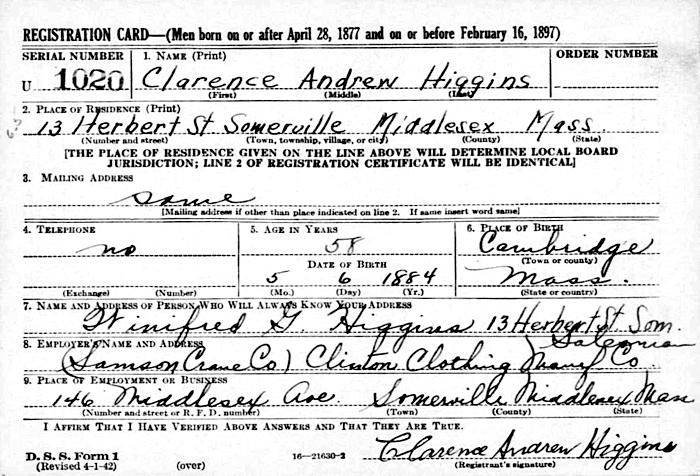 REGISTRATION CARD—(Men born on or after April 28, 1877 and on or before February 16, 1897)
SERIAL NUMBER 1. NAME (Print) ORDER NUMBER
U 1020 Clarence Andrew Higgins
(First) (Middle) (Last)
2. PLACE OF RESIDENCE (Print)
13 Herbert St Somerville Middlesex Mass.
(Number and street) (Town, township, village, or city) (County) (State)
[THE PLACE OF RESIDENCE GIVEN ON THE LINE ABOVE WILL DETERMINE LOCAL BOARD
JURISDICTION; LINE 2 OF REGISTRATION CERTIFICATE WILL BE IDENTICAL]
3. MAILING ADDRESS
same
[Mailing address if other than place indicated on line 2. If same insert word same]
4. TELEPHONE 5. AGE IN YEARS 6. PLACE OF BIRTH
no 58 Cambridge
DATE OF BIRTH (Town or county)
5 6 1884 Mass.
(Exchange) (Number) (Mo.) (Day) (Yr.) (State or country)
7. NAME AND ADDRESS OF PERSON WHO WILL ALWAYS KNOW YOUR ADDRESS
Winifred G. Higgins 13 Herbert St Som.
8. EMPLOYER'S NAME AND ADDRESS Salesman
(Samson Crane Co) Clinton Clothing Manuf Co
9. PLACE OF EMPLOYMENT OR BUSINESS
146 Middlesex Ave. Somerville Middlesex Mass
(Number and street or R. F. D. number) (Town) (County) (State)
I AFFIRM THAT I HAVE VERIFIED ABOVE ANSWERS AND THAT THEY ARE TRUE.
D. S. S. Form 1 16—21630-2 Clarence Andrew Higgins
(Revised 4-1-42) (over) (Registrant's signature)